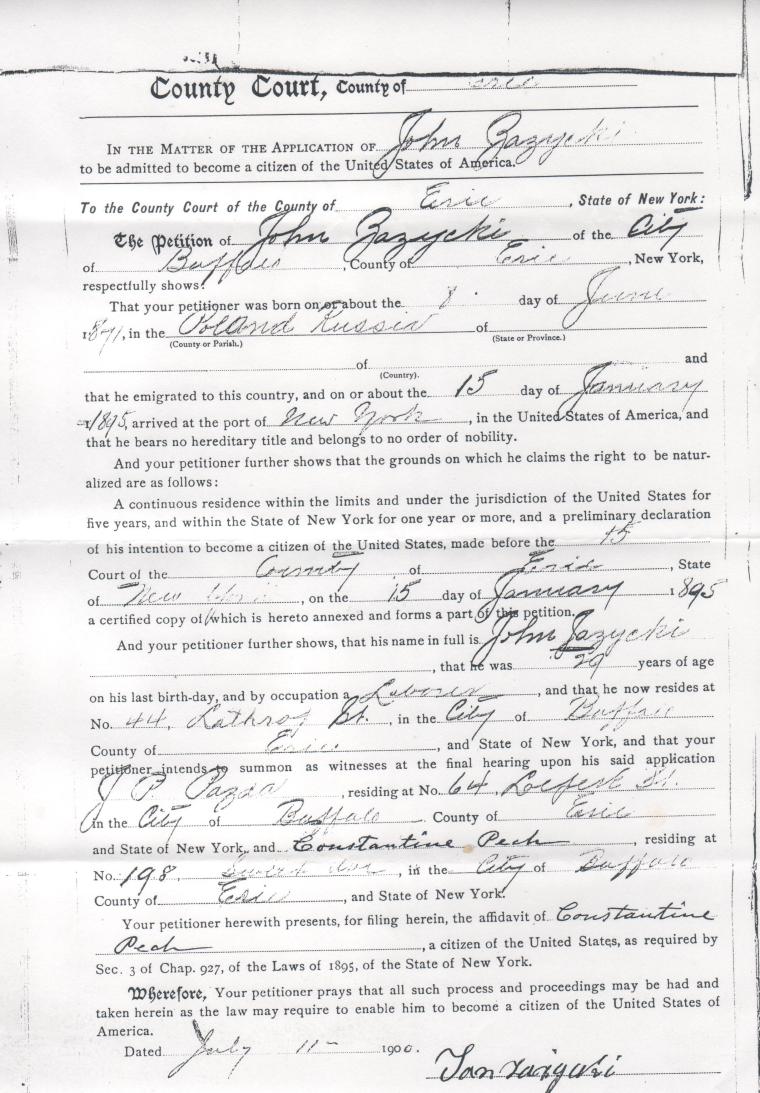 County Court, County of Erie
IN THE MATTER OF THE APPLICATION OF John Zazycki
to be admitted to become a citizen of the United States of America.
To the County Court of the County of Erie, State of New York:
The Petition of John Zazycki of the City
of Buffalo, County of Erie, New York,
respectfully shows:
That your petitioner was born on or about the 8 day of June
1871, in the Poland Russia of
(County or Parish.) (State or Province.)
of and
(Country).
that he emigrated to this country, and on or about the 15 day of January
1895, arrived at the port of New York, in the United States of America, and
that he bears no hereditary title and belongs to no order of nobility.
And your petitioner further shows that the grounds on which he claims the right to be natur-
alized are as follows:
A continuous residence within the limits and under the jurisdiction of the United States for
five years, and within the State of New York for one year or more, and a preliminary declaration
of his intention to become a citizen of the United States, made before the 15
Court of the County of Erie, State
of New York, on the 15 day of January 1895
a certified copy of which is hereto annexed and forms a part of this petition.
And your petitioner further shows, that his name in full is John Zazycki
, that he was 29 years of age
on his last birth-day, and by occupation a Laborer, and that he now resides at
No. 44, Lathrop St., in the City of Buffalo
County of Erie, and State of New York, and that your
petitioner intends to summon as witnesses at the final hearing upon his said application
J. P. Pazda, residing at No. 64, St.
in the City of Buffalo. County of Erie
and State of New York, and Constantine Pech, residing at
No. 198, in the City of Buffalo
County of Erie, and State of New York.
Your petitioner herewith presents, for filing herein, the affidavit of Constantine
Pech, a citizen of the United States, as required by
Sec. 3 of Chap. 927, of the Laws of 1895, of the State of New York.
Wherefore, Your petitioner prays that all such process and proceedings may be had and
taken herein as the law may require to enable him to become a citizen of the United States of
America.
Dated July 11 - 1900.
Jan